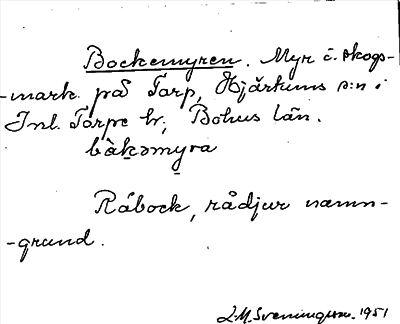 Bockemyren. Myr i skogs-
-mark på Torp, Hjärtums s:n i
Inl. Torpe hr, Bohus län.
bàkəmyra
Råbock, rådjur namn-
-grund.
L.M. Svenungsson. 1951